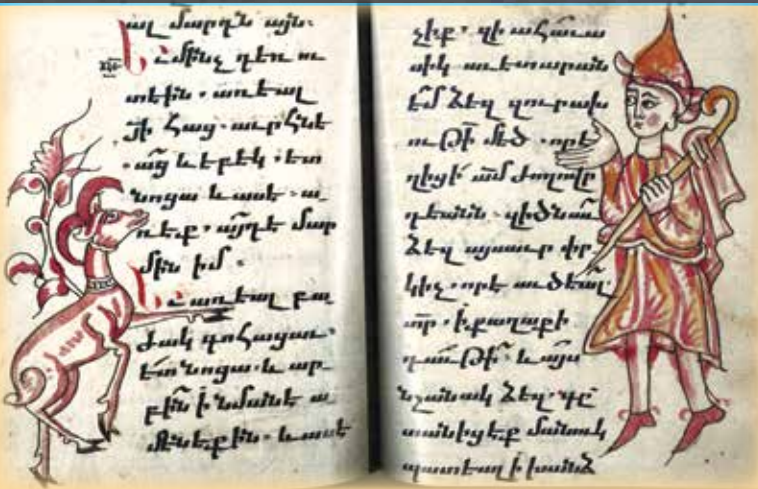 ալ մարդն այն։
Եւ մինչ դեռ ու
տեին · առեալ
յի հաց · աւրհնե
· աց և եբեկ · ետ
նոցա և ասէ · ա
ռէք · այդ է մար
մին իմ ·
Եւ առեալ բա
ժակ գոհացաւ ·
ետ նոցա · և ար
բին ի նմանէ ա
մենեքին · և ասէ
չիք · զի ահաւա
սիկ աւետարան
եմ ձեզ զուրախ
ութի մեծ · որ է
ղիցի ամ ժողովր
դեանն · զի ծնաւ
ձեզ այսաւր փր
կիչ · որ է աւծեալ
տր · ի քաղաքի
դաւթի · և այս
նշանակ ձեզ · գը
տանիցէք մանուկ
պատեալ ի խանձ